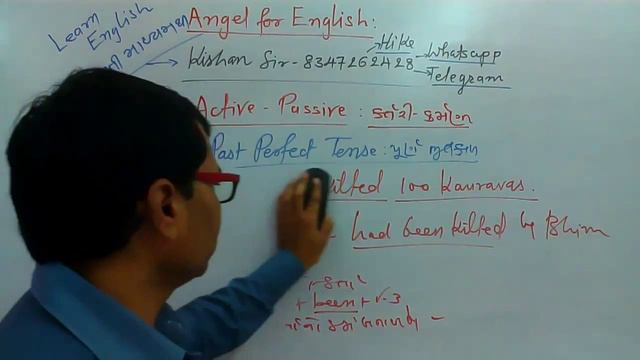 Learn
English
Angel for English:
Hike
Kishan Sir - 8347262428 → Whatsapp
→ Telegram
Active - Passive : કર્તરી-કર્મણિ
Past Perfect Tense : પૂર્ણ ભૂતકાળ
killed 100 Kauravas.
had been killed by Bhim
+ been + v-3